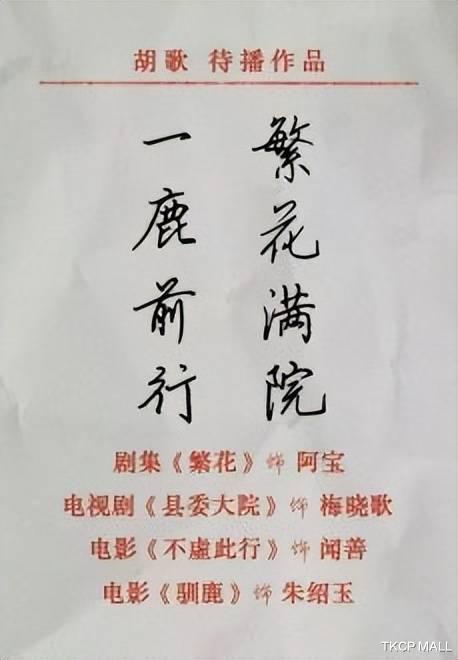 胡歌 待播作品
繁花满院
一鹿前行
剧集《繁花》饰 阿宝
电视剧《县委大院》饰 梅晓歌
电影《不虚此行》饰 闻善
电影《驯鹿》饰 朱绍玉
TKCP MALL